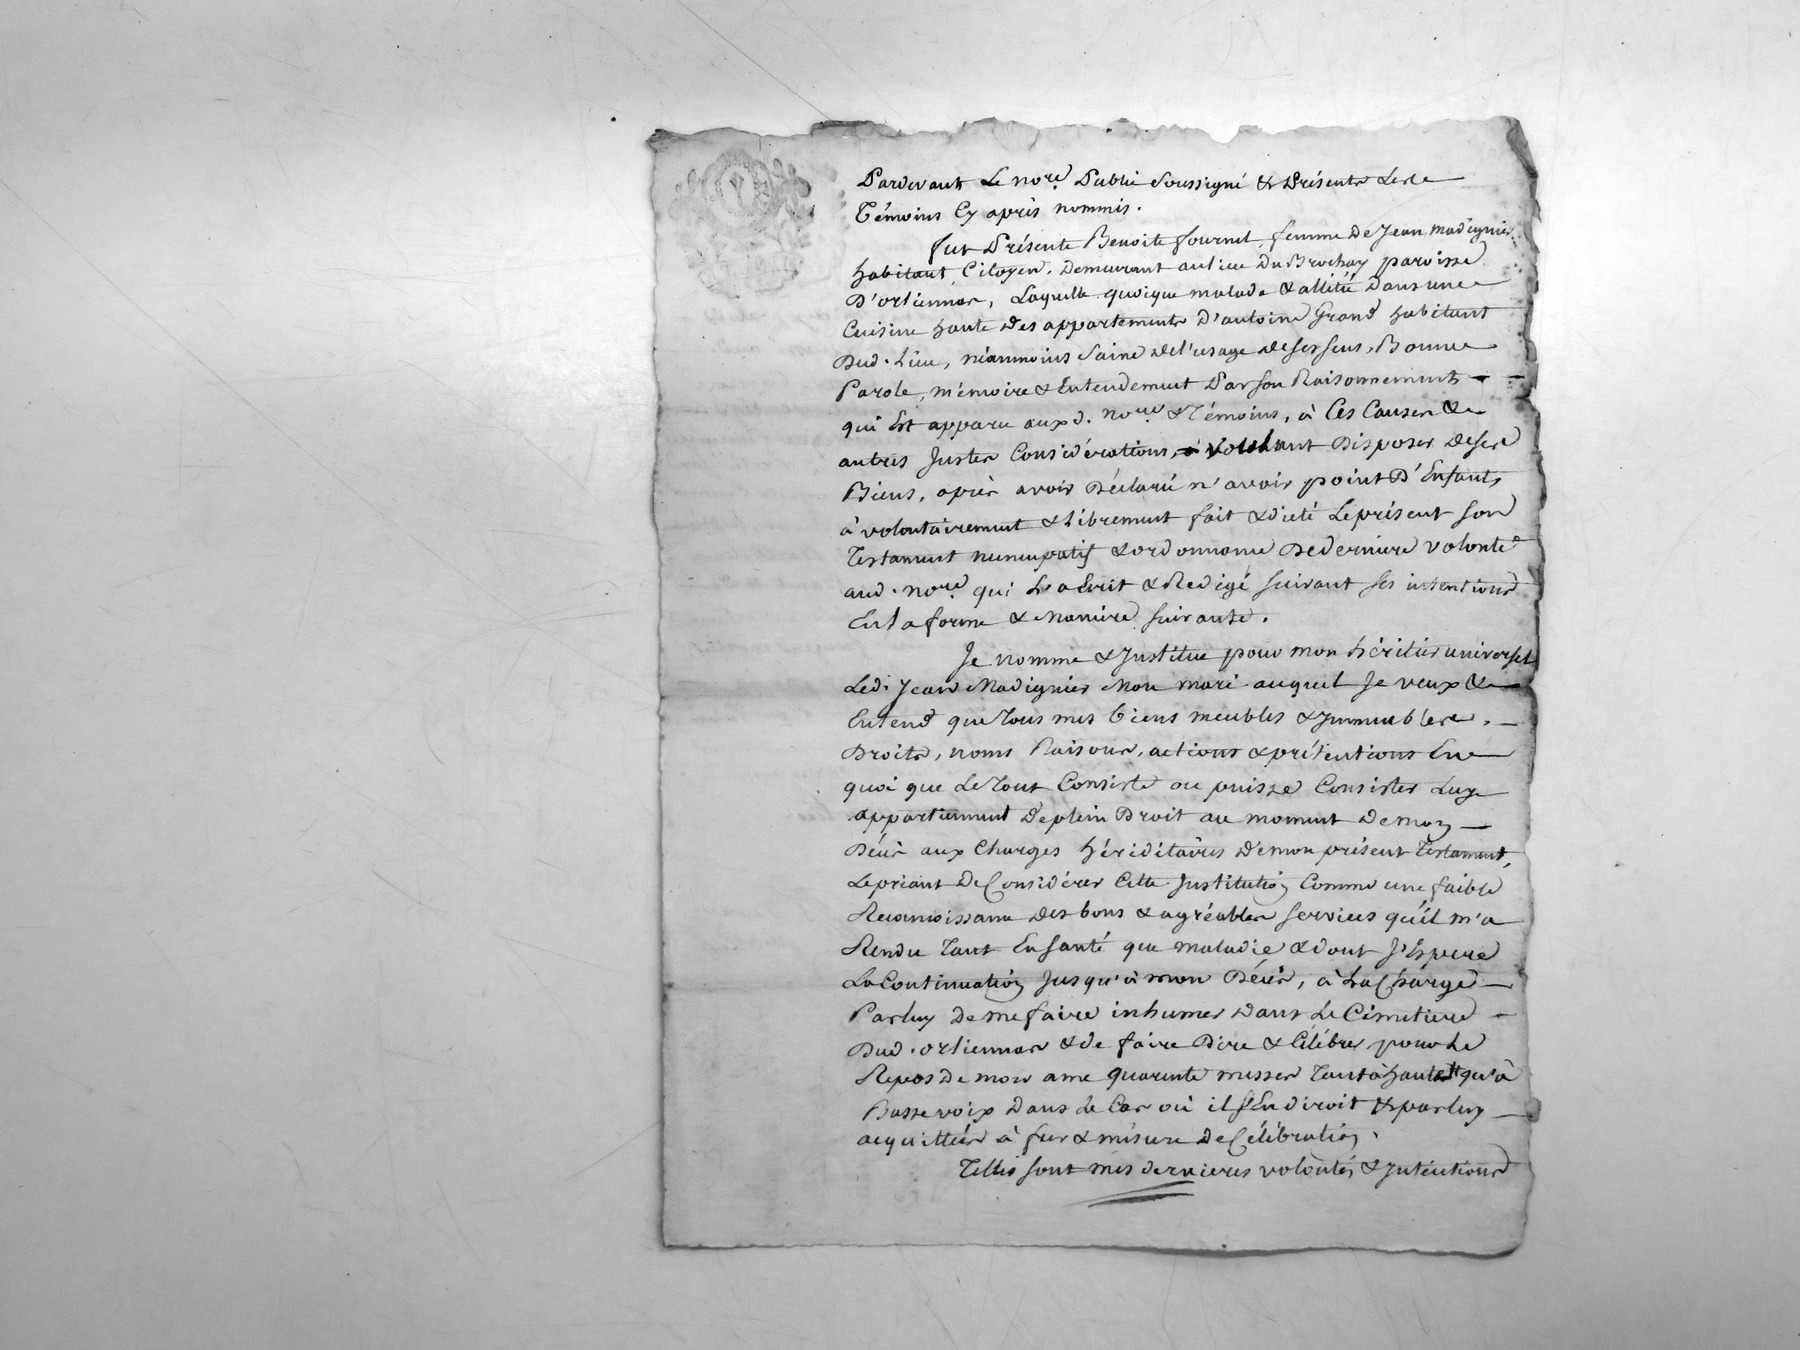 Pardevant Le no.re Public Soussigné & Présents Les
Témoins Cy après nommés.
fut Présente Benoite fournel, femme De Jean Madignier
habitant Citoyen. Demeurant au lieu Du Brochay paroisse
D'ortiennas, Laquelle quoique malade & allitée Dans une
Cuisine haute Des appartements D'antoine Grand habitant
Dud. Lieu, néanmoins Saine de l'usage de ses sens, Bonne
Parole, mémoire & Entendement Par son Raisonnement
qui Est apparu aux d. no.re & Témoins, à Ces Causes &
autres Justes Considérations, voulant Disposer de ses
Biens, après avoir Déclaré n'avoir point D'Enfants
à volontairement & librement fait & dicté Le présent son
Testament nuncupatif & ordonnance De derniere volonté
aud. no.re qui L'a Ecrit & Redigé suivant ses intentions
En la forme & Maniere suivante.
Je nomme & Institue pour mon héritier universel
Led. Jean Madignier Mon mari auquel Je veux &
Entend que Tous mes biens meubles & Immeubles,
Droits, noms Raisons, actions & prétentions En
quoi que Le Tout Consiste ou puisse Consister Luy
appartiennent De plein Droit au moment De mon
Décès aux Charges héréditaires De mon présent Testament,
Le priant De Considérer Cette Institution Comme une faible
Reconnoissance Des bons & agréables services qu'il m'a
Rendu Tant En santé que maladie & dont J'Espere
La Continuation Jusqu'à mon Décès, à La Charge
Par luy De me faire inhumer Dans Le Cimetiere
Dud. ortiennas & de faire Dire & Célébrer pour Le
Repos De mon ame quarente messes Tant à haute qu'à
Basse voix Dans Le Cas où il s'En diroit & par luy
acquittées à fur & mesure De Célébration.
Telles sont mes dernieres volontés & Intentions